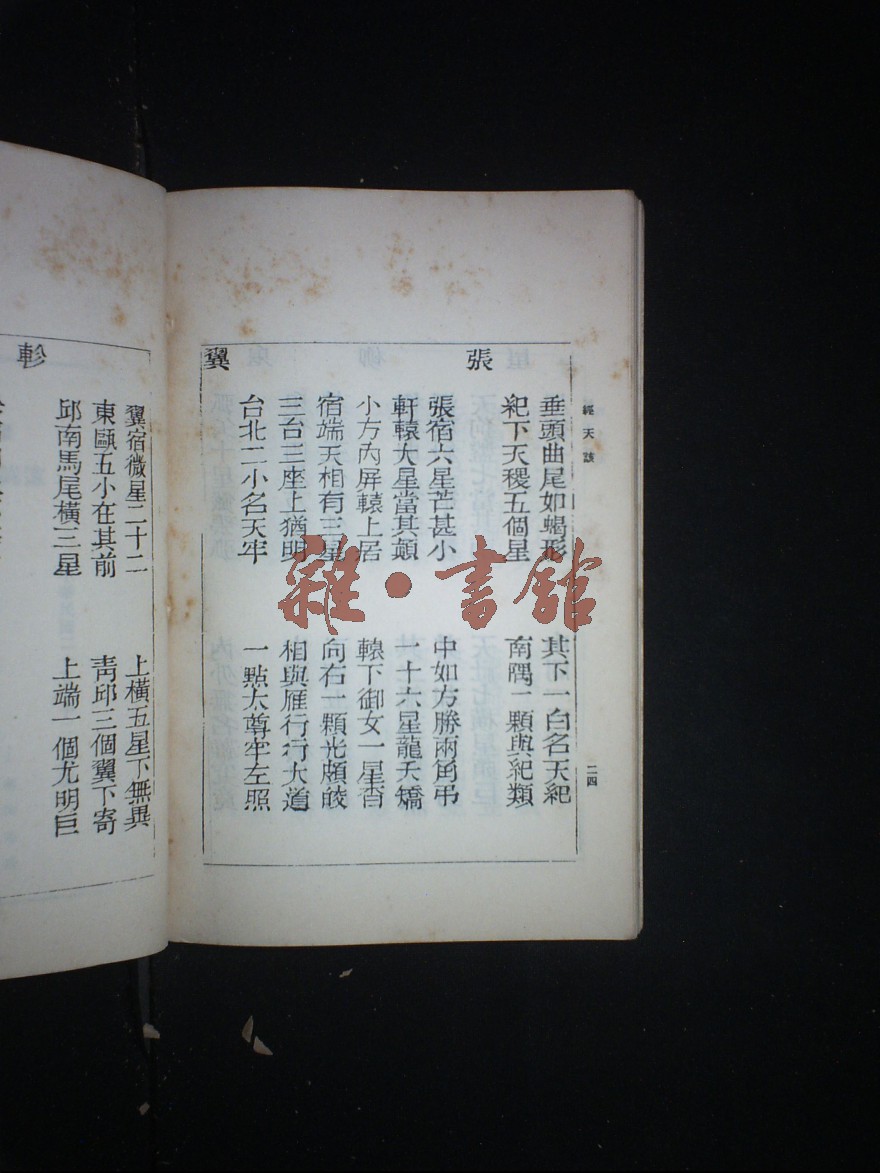 經天該
二四
張
翼
垂頭曲尾如蝎形 其下一白名天紀
紀下天稷五個星 南隅一顆與紀類
張宿六星芒甚小 中如方勝兩角弔
軒轅大星當其顛 一十六星龍夭矯
小方內屏轅上居 轅下御女一星杳
宿端天相有三星 向右一顆光頗皎
三台三座上猶明 相與雁行行大道
台北二小名天牢 一點太尊牢左照
軫
翼宿微星二十二 上橫五星下無異
東甌五小在其前 靑邱三個翼下寄
邱南馬尾橫三星 上端一個尤明巨
雜·書館